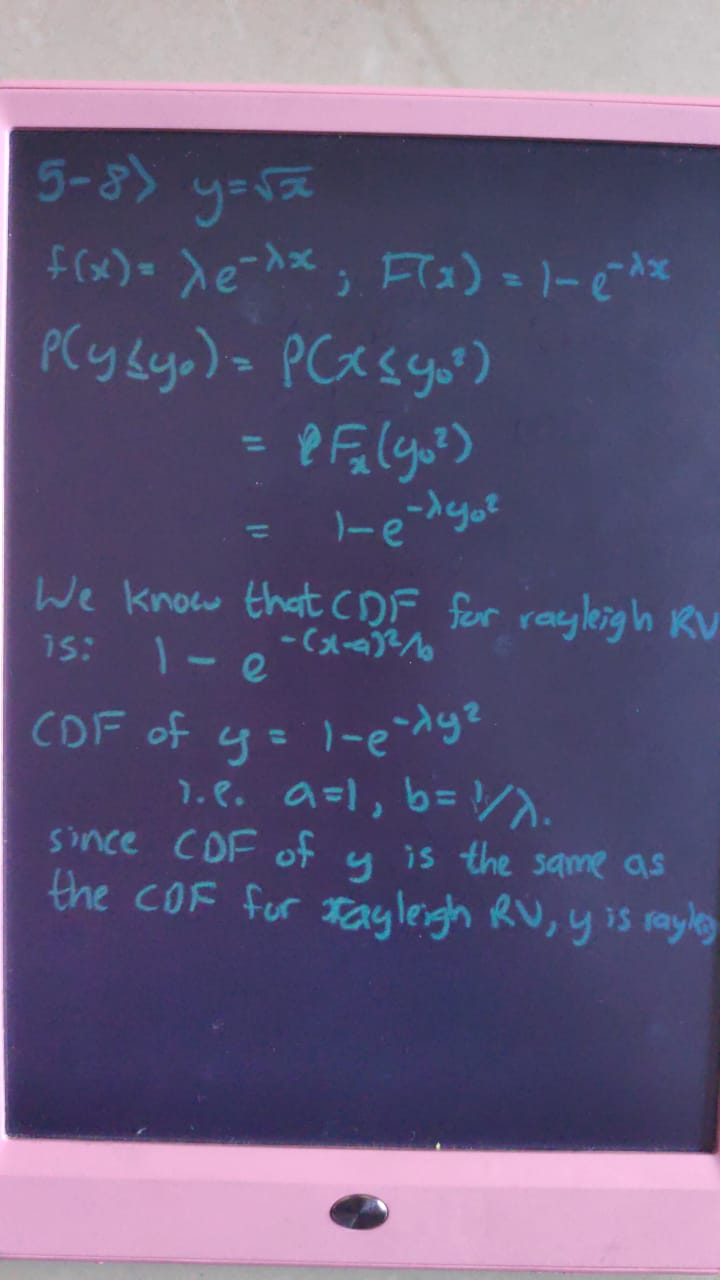 5-8) y=√x
f(x)= λe^-λx ; F(x) = 1-e^-λx
P(y≤y₀) = P(x≤y₀²)
= Fₓ(y₀²)
= 1-e^-λy₀²
We know that CDF for rayleigh RV
is: 1 - e^-(x-a)²/b
CDF of y = 1-e^-λy²
i.e. a=1, b= 1/λ.
since CDF of y is the same as
the CDF for rayleigh RV, y is rayleig